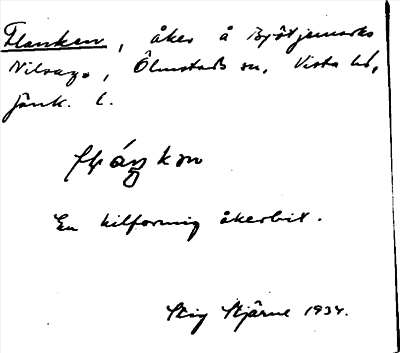 Flanken, åker å Björtjemarks
Nilsag., Ölmstads sn, Vista hd,
Jönk. l.
En kilformig åkerbit.
Stig Stjärne 1934.